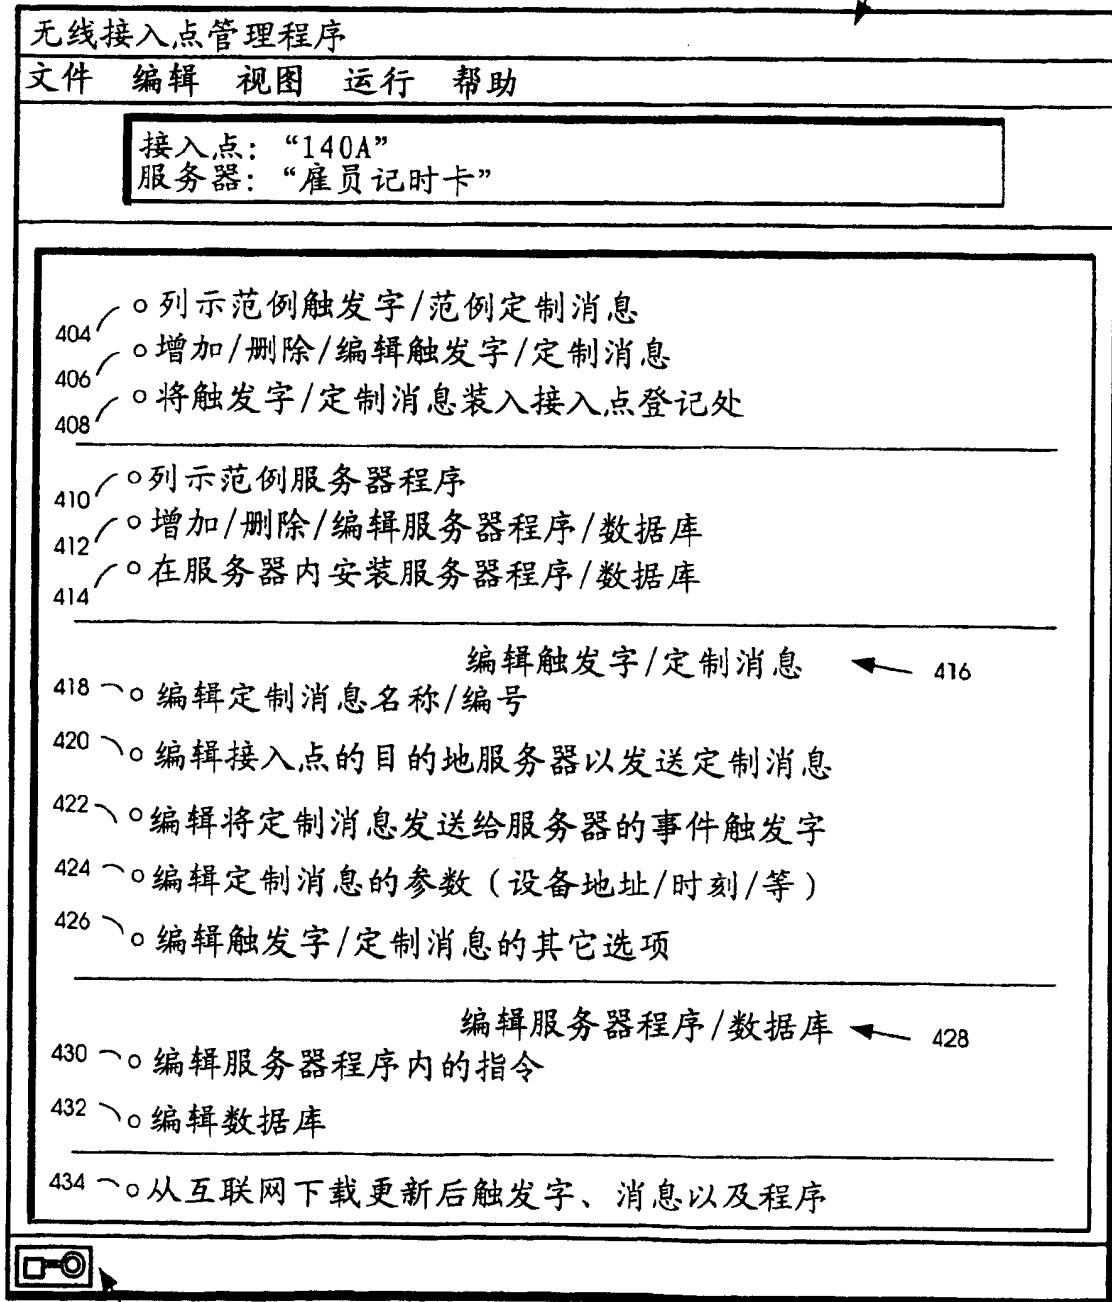 无线接入点管理程序
文件 编辑 视图 运行 帮助
接入点: “140A”
服务器: “雇员记时卡”
404 列示范例触发字/范例定制消息
406 增加/删除/编辑触发字/定制消息
408 将触发字/定制消息装入接入点登记处
410 列示范例服务器程序
412 增加/删除/编辑服务器程序/数据库
414 在服务器内安装服务器程序/数据库
编辑触发字/定制消息 416
418 编辑定制消息名称/编号
420 编辑接入点的目的地服务器以发送定制消息
422 编辑将定制消息发送给服务器的事件触发字
424 编辑定制消息的参数(设备地址/时刻/等)
426 编辑触发字/定制消息的其它选项
编辑服务器程序/数据库 428
430 编辑服务器程序内的指令
432 编辑数据库
434 从互联网下载更新后触发字、消息以及程序